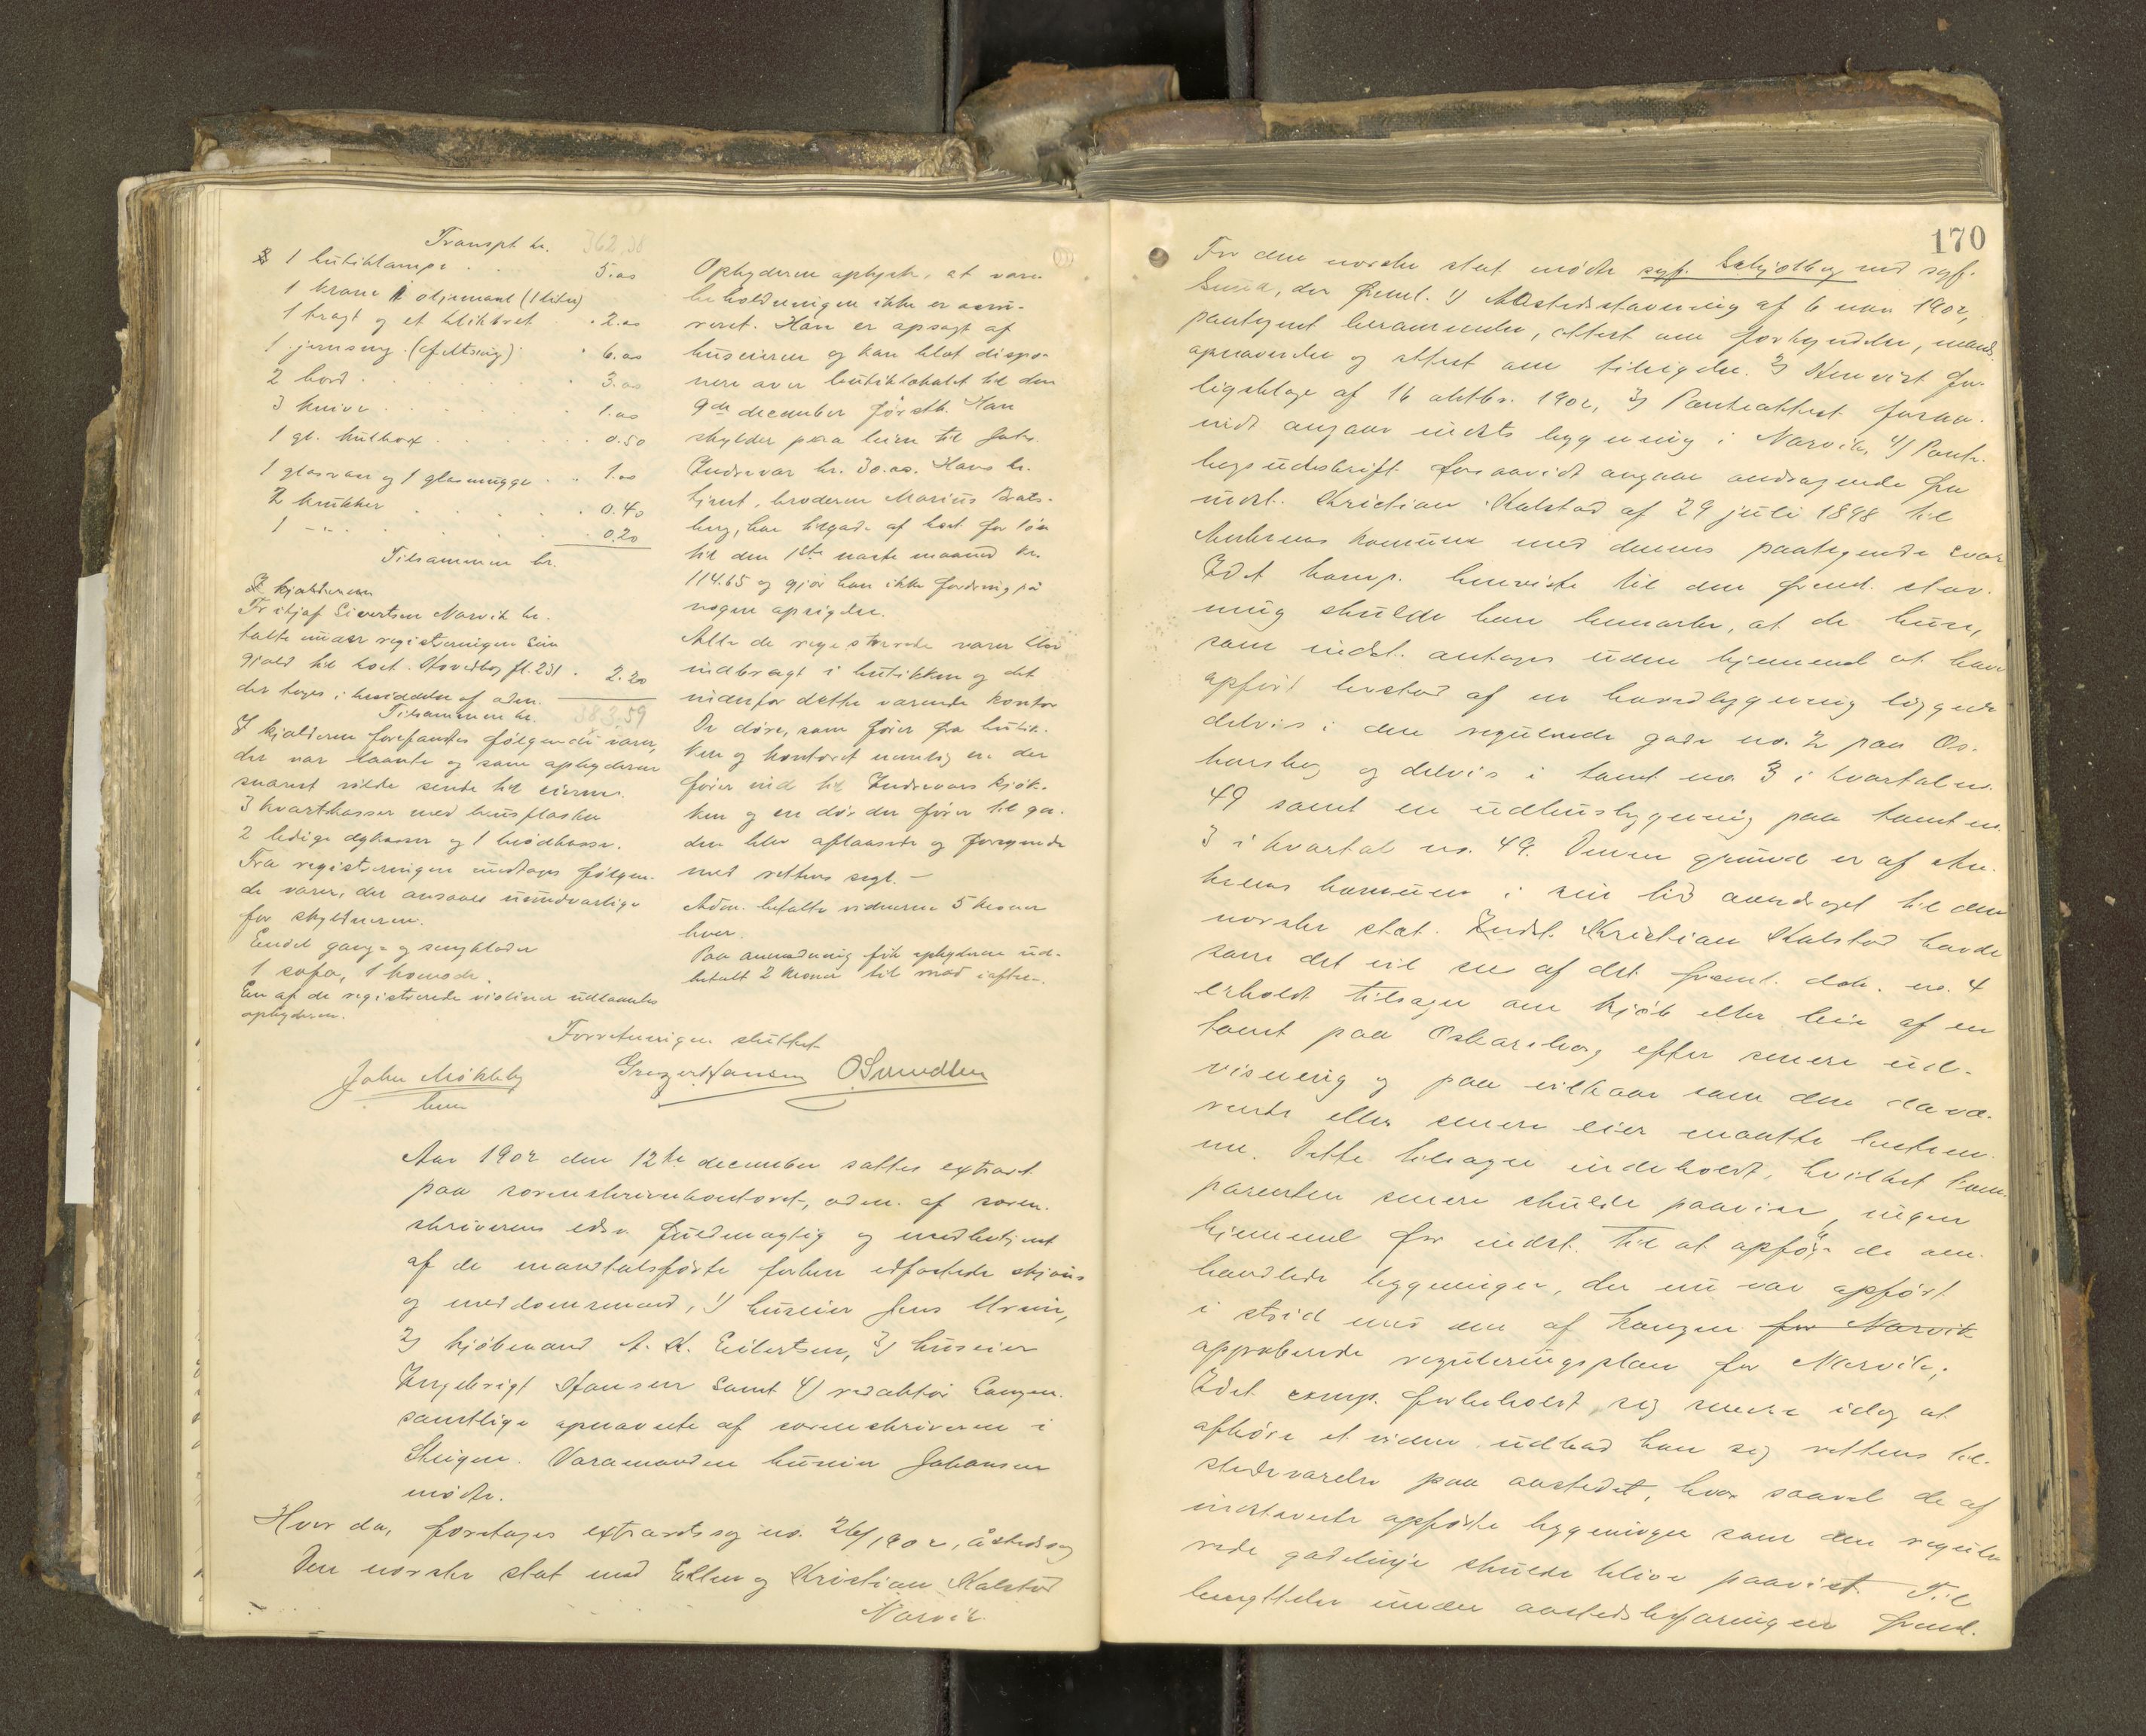 Transpt kr. 362,38
1 butiklampe . . 5.00
1 krane i oljemaal (1 liter)
1 tragt og et blikbret . 2.00
1 jernseng (feltseng) . 6.00
2 bord . . . 3.00
3 knive . . . 1.00
1 gl. kulbox . . . 0.50
1 glasvase og 1 glasmugge . . 1.00
2 krukker . . . 0.40
1 -"- . . . 0.20
Tilsammen kr.
I kjælderen
Fritjof Sivertsen Narvik be-
talte under registreringen sin
gjæld til boet. Hovedbog fl. 251 . 2.20
der toges i besiddelse af adm.
Tilsammen kr. 383,59
I kjælderen forefandtes følgende varer,
der var laante og som opbyderen
snarest vilde sende til eierne.
3 kvartkasser med brusflasker
2 ledige ølkasser og 1 brødkasse.
Fra registreringen undtages følgen-
de varer, der ansaaes uundværlige
for skyldneren.
Endel gang- og sengklæder
1 sofa, 1 komode.
En af de registrerede violiner udlaantes
opbyderen.
Opbyderen oplyste, at vare-
beholdningen ikke er assu-
reret. Han er opsagt af
huseieren og kan blot dispo-
nere over butiklokalet til den
9de december førstk. Han
skylder paa leien til Johs.
Indrevær kr. 30.00. Hans be-
tjent, broderen Marius Brats-
berg, har tilgode af boet for løn
til den 1ste næste maaned kr.
114.65 og gjør han ikke fordring på
nogen opsigelse.
Alle de registrerede varer blev
indbragt i butikken og det
indenfor dette værende kontor
De døre, som fører fra butik-
ken og kontoret nemlig en der
fører ind til Indreværs kjøk-
ken og en dør der fører til ga-
den blev aflaasede og forsynede
med rettens segl. –
Adm. betalte vidnerne 5 kroner
hver.
Paa anmodning fik opbyderen ud-
betalt 2 kroner til mad iaften.
Forretningen sluttet.
John Møkleby
Greger Hansen O Svendsen
Aar 1902 den 12te december sattes extraret
paa sorenskriverkontoret, adm. af soren-
skriverens edsv. fuldmægtig og medbetjent
af de mandtalsførte forhen edfæstede skjøns
og meddomsmænd, 1) huseier Jens Urnin,
2) kjøbmand A. K. Eilertsen, 3) huseier
Ingebrigt Hansen samt 4) redaktør Caugen.
samtlige opnævnte af sorenskriveren i
Steigen. Varamanden huseier Johansen
mødte.
Hvor da, foretages extraretssag no. 26/1902, åstedssag
Den norske stat mod Ellen og Kristian Kalstad
Narvik
170
For den norske stat mødte sagf. Schjølberg ved sagf.
der freml. 1) Aastedsstævning af 6 nov. 1902,
paategnet berammelse, attest om forkyndelse, mands-
opnævnelse og attest om tilsigelse. 2) Henvist for-
ligsklage af 16 oktbr. 1902, 3) Panteattest forsaa-
vidt angaar indsts bygning i Narvik, 4) Pante-
bogsudskrift forsaavidt angaar andragende fra
indst. Kristian Kalstad af 29 juli 1898 til
Ankenes kommune med dennes paategnede svar
Idet komp. henviste til den freml. stæv-
ning skulde han bemærke, at de huse,
som indst. antages uden hjemmel at have
opført bestod af en hovedbygning liggende
delvis i den regulerede gade no. 2 paa Os-
karsborg og delvis i tomt no. 3 i kvartal no.
49 samt en udhusbygning paa tomt no.
3 i kvartal no. 49. Denne grund er af An-
kenes kommune i sin tid overdraget til den
norske stat. Indst. Kristian Kalstad havde
som det vil sees af det freml. dok. no. 4
erholdt tilsagn om kjøb eller leie af en
tomt paa Oskarsborg efter senere ud-
visning og paa vilkaar som den davæ-
rende eller senere eier maatte bestem-
me. Dette tilsagn indeholdt, hvilket kom-
parenten senere skulde paavise, ingen
hjemmel for indst. til at opføre de om-
handlede bygninger, der nu var opført
i strid med den af Kongen for Narvik
approberede reguleringsplan for Narvik.
Idet comp. forbeholdt sig senere idag at
afhøre et vidne udbad han sig rettens til-
stedeværelse paa aastedet, hvor saavel de af
indstævnte opførte bygninger som den regule-
rede gadelinje skulde blive paavist. Til
benyttelse under aastedsbefaringen freml.